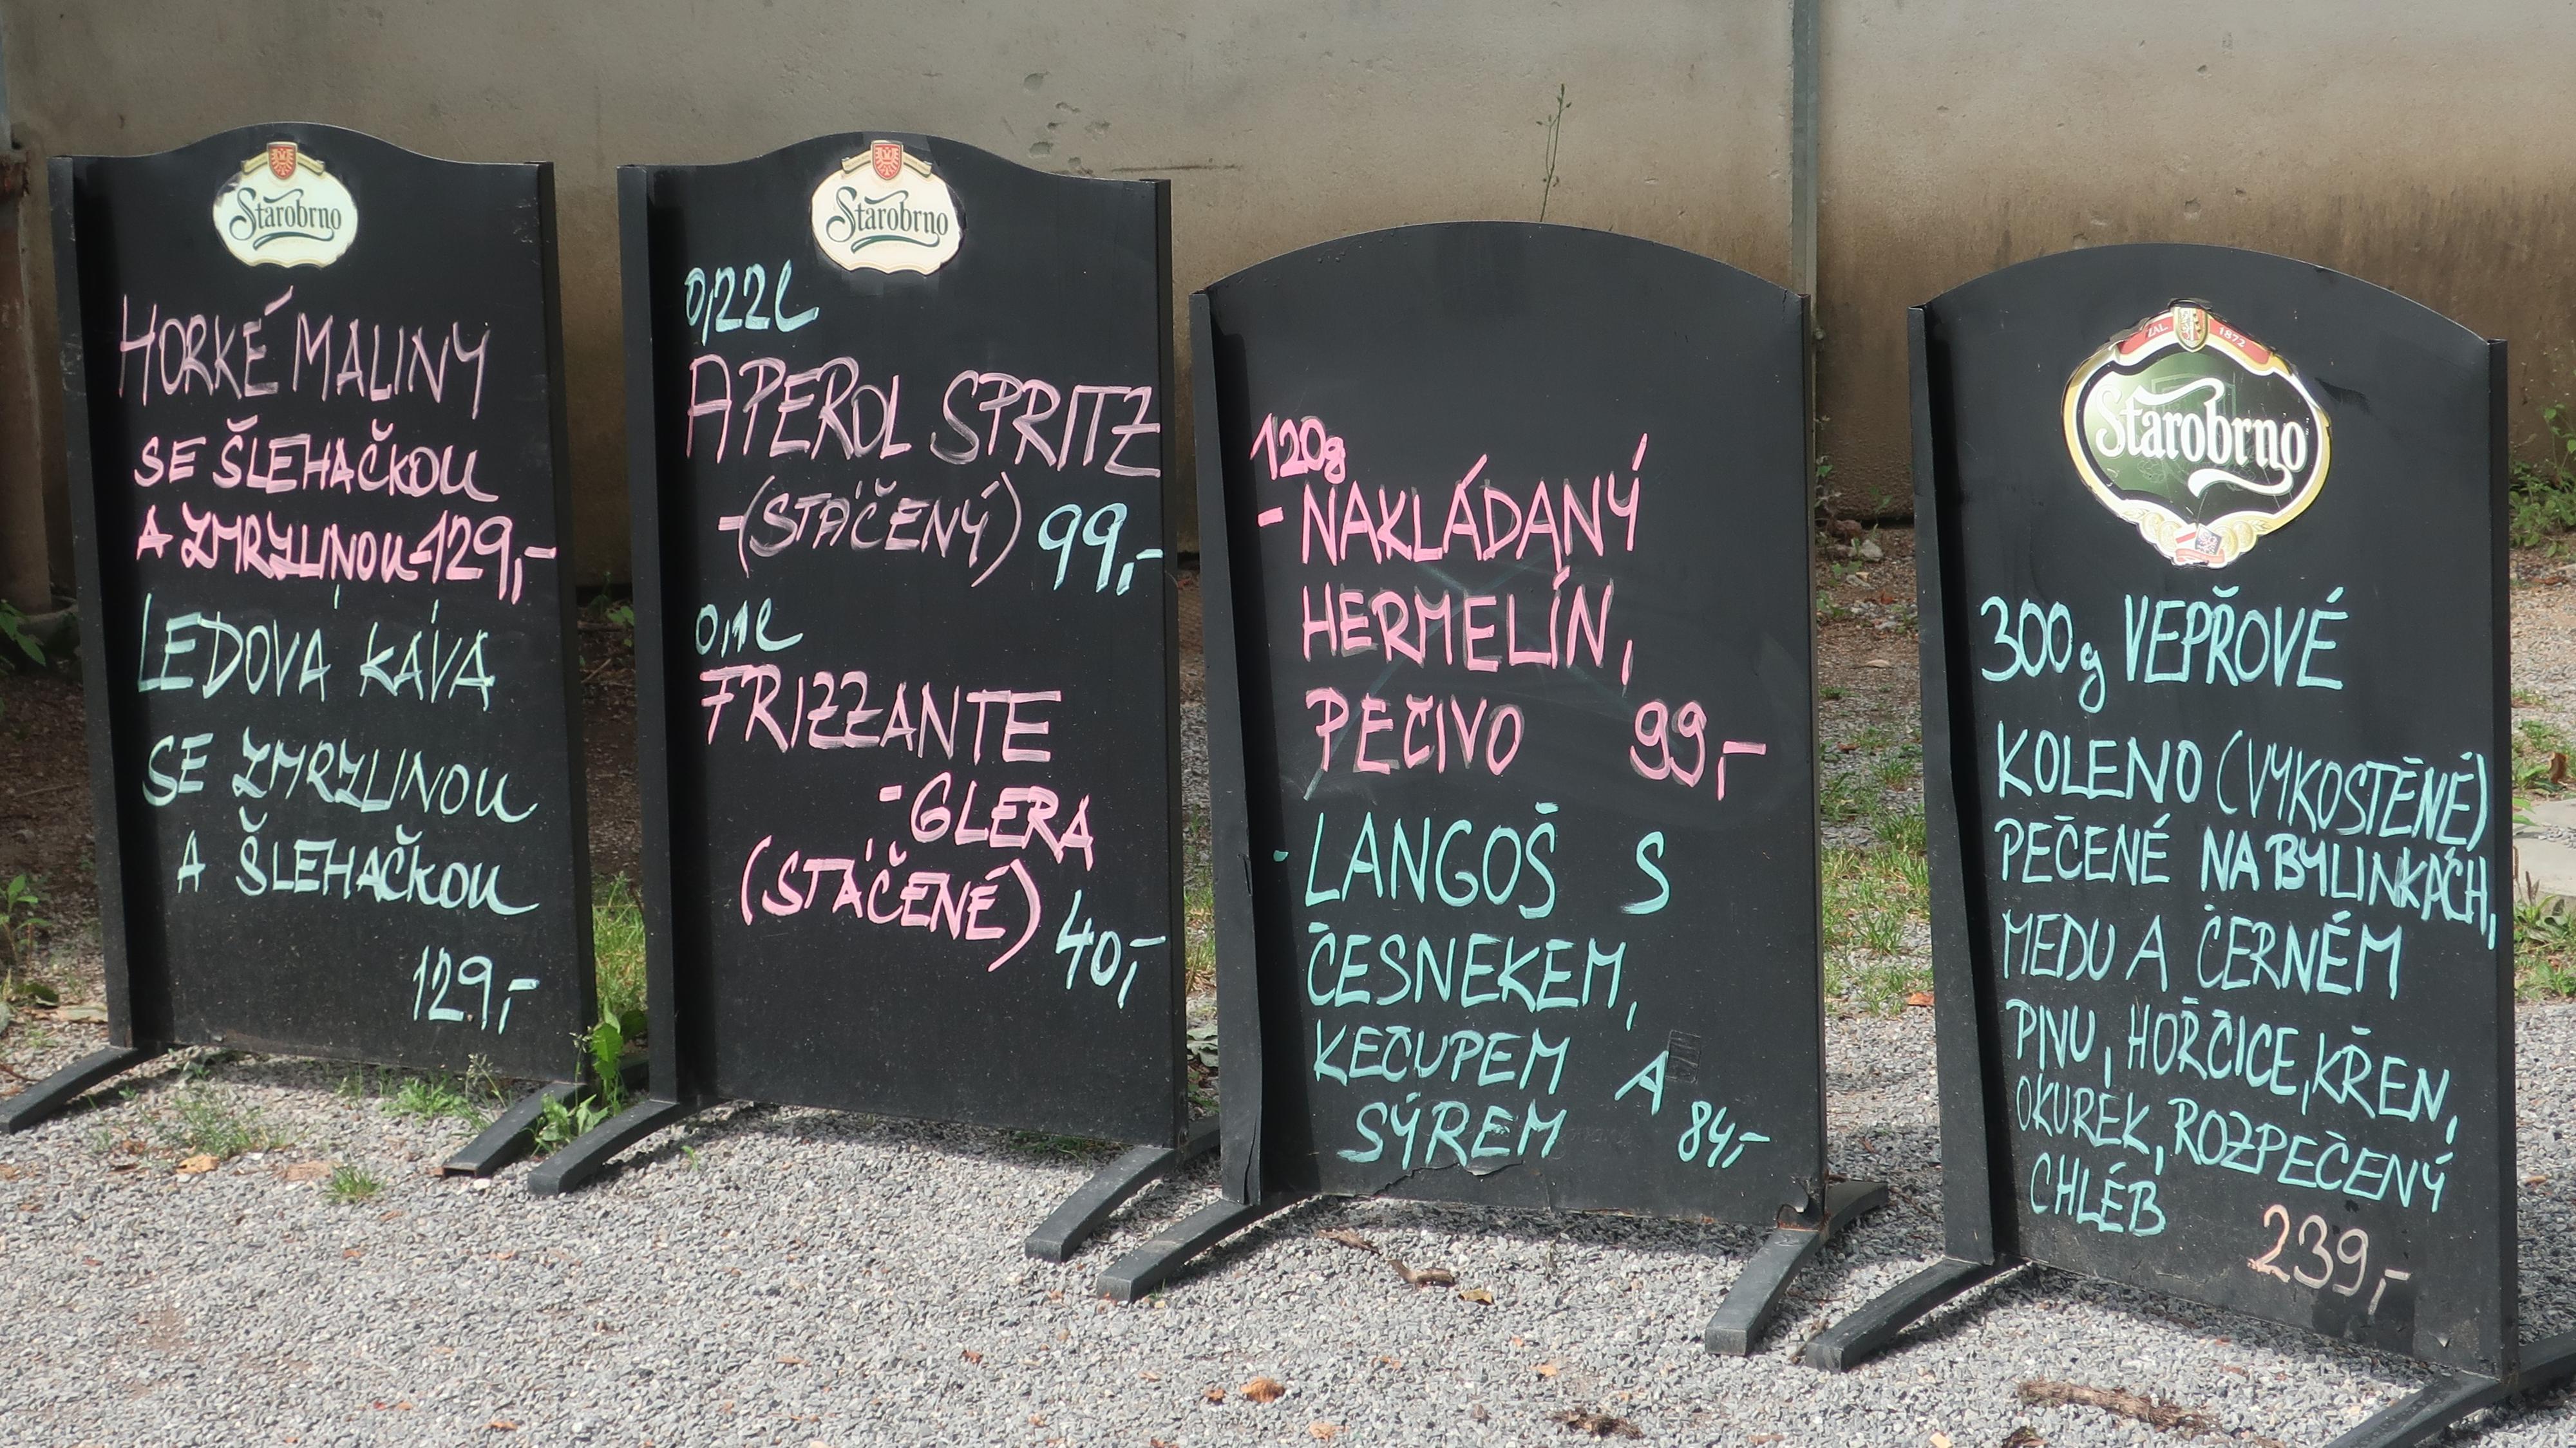 Starobrno
HORKÉ MALINY
SE ŠLEHAČKOU
A ZMRZLINOU-129,-
LEDOVÁ KÁVA
SE ZMRZLINOU
A ŠLEHAČKOU
129,-
Starobrno
0,22l
APEROL SPRITZ
-(STÁČENÝ) 99,-
0,1l
FRIZZANTE
-GLERA
(STÁČENÉ) 40,-
120g
- NAKLÁDANÝ
HERMELÍN,
PEČIVO 99,-
- LANGOŠ S
ČESNEKEM,
KEČUPEM A
SÝREM 84,-
ZAL. 1872
Starobrno
300g VEPŘOVÉ
KOLENO (VYKOSTĚNÉ)
PEČENÉ NA BYLINKÁCH,
MEDU A ČERNÉM
PIVU, HOŘČICE, KŘEN,
OKUREK, ROZPEČENÝ
CHLÉB
239,-